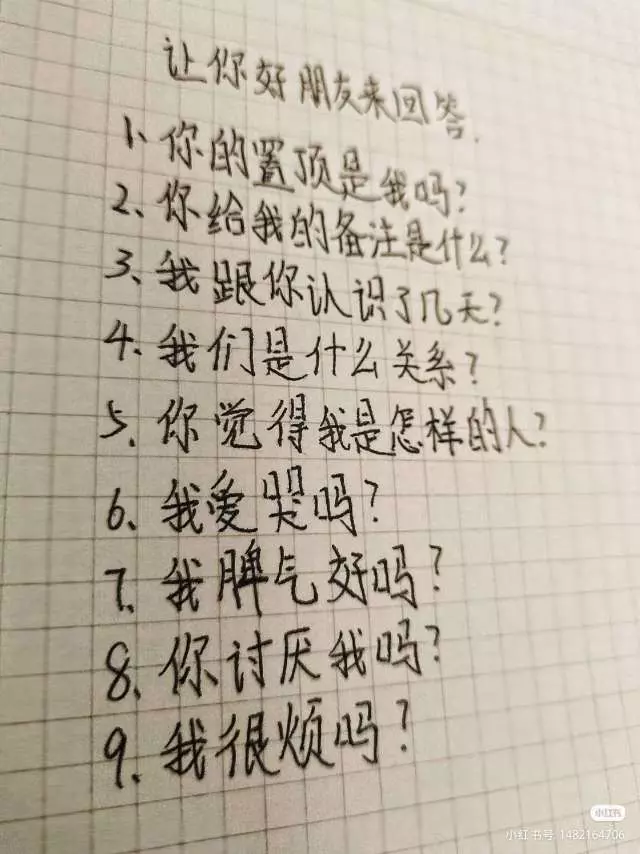 让你好朋友来回答.
1、你的置顶是我吗?
2、你给我的备注是什么?
3、我跟你认识了几天?
4、我们是什么关系?
5、你觉得我是怎样的人?
6、我爱哭吗?
7、我脾气好吗?
8、你讨厌我吗?
9、我很烦吗?
小红书
小红书号 1482164706